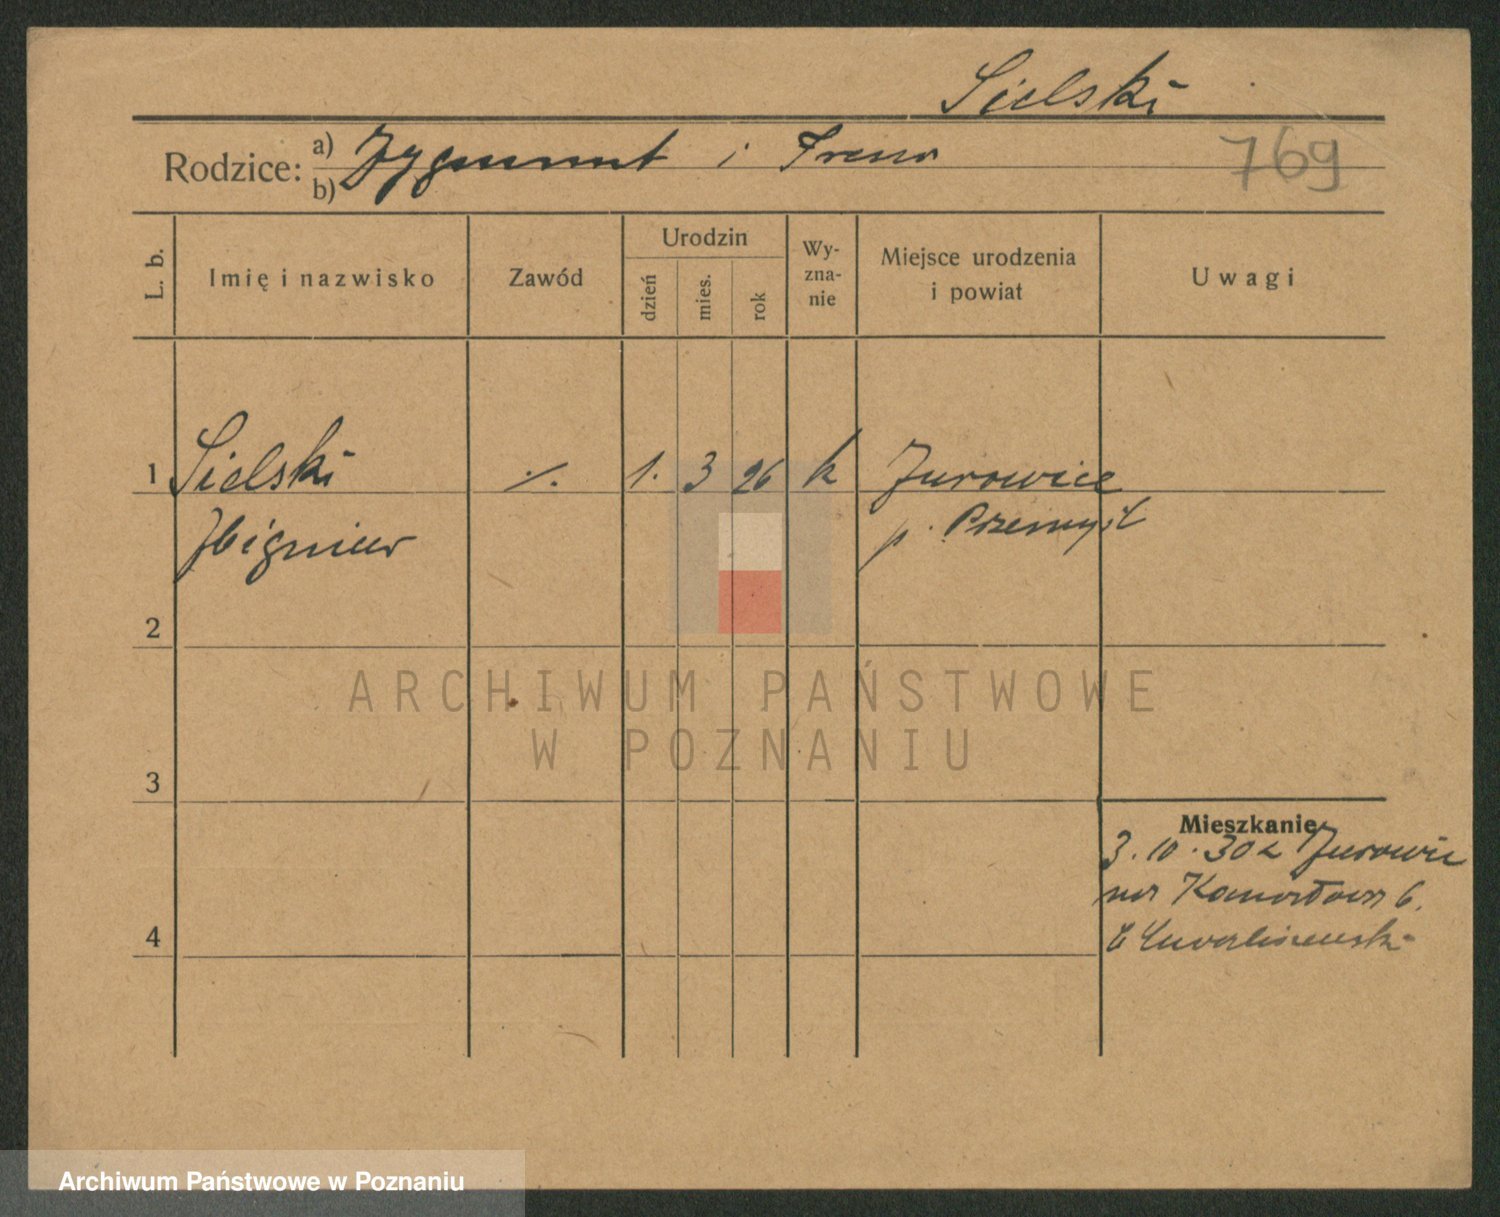 Sielski
Rodzice: a) Zygmunt i Irena
b)
769
L. b.
Imię i nazwisko
Zawód
Urodzin
dzień
mies.
rok
Wy-
zna-
nie
Miejsce urodzenia
i powiat
Uwagi
1 Sielski ./. 1. 3 26 k Jurowice
Zbigniew p. Przemyśl
2
ARCHIWUM PAŃSTWOWE
W POZNANIU
3
Mieszkanie
3.10.30 z Jurowic
na 6.
4
Archiwum Państwowe w Poznaniu